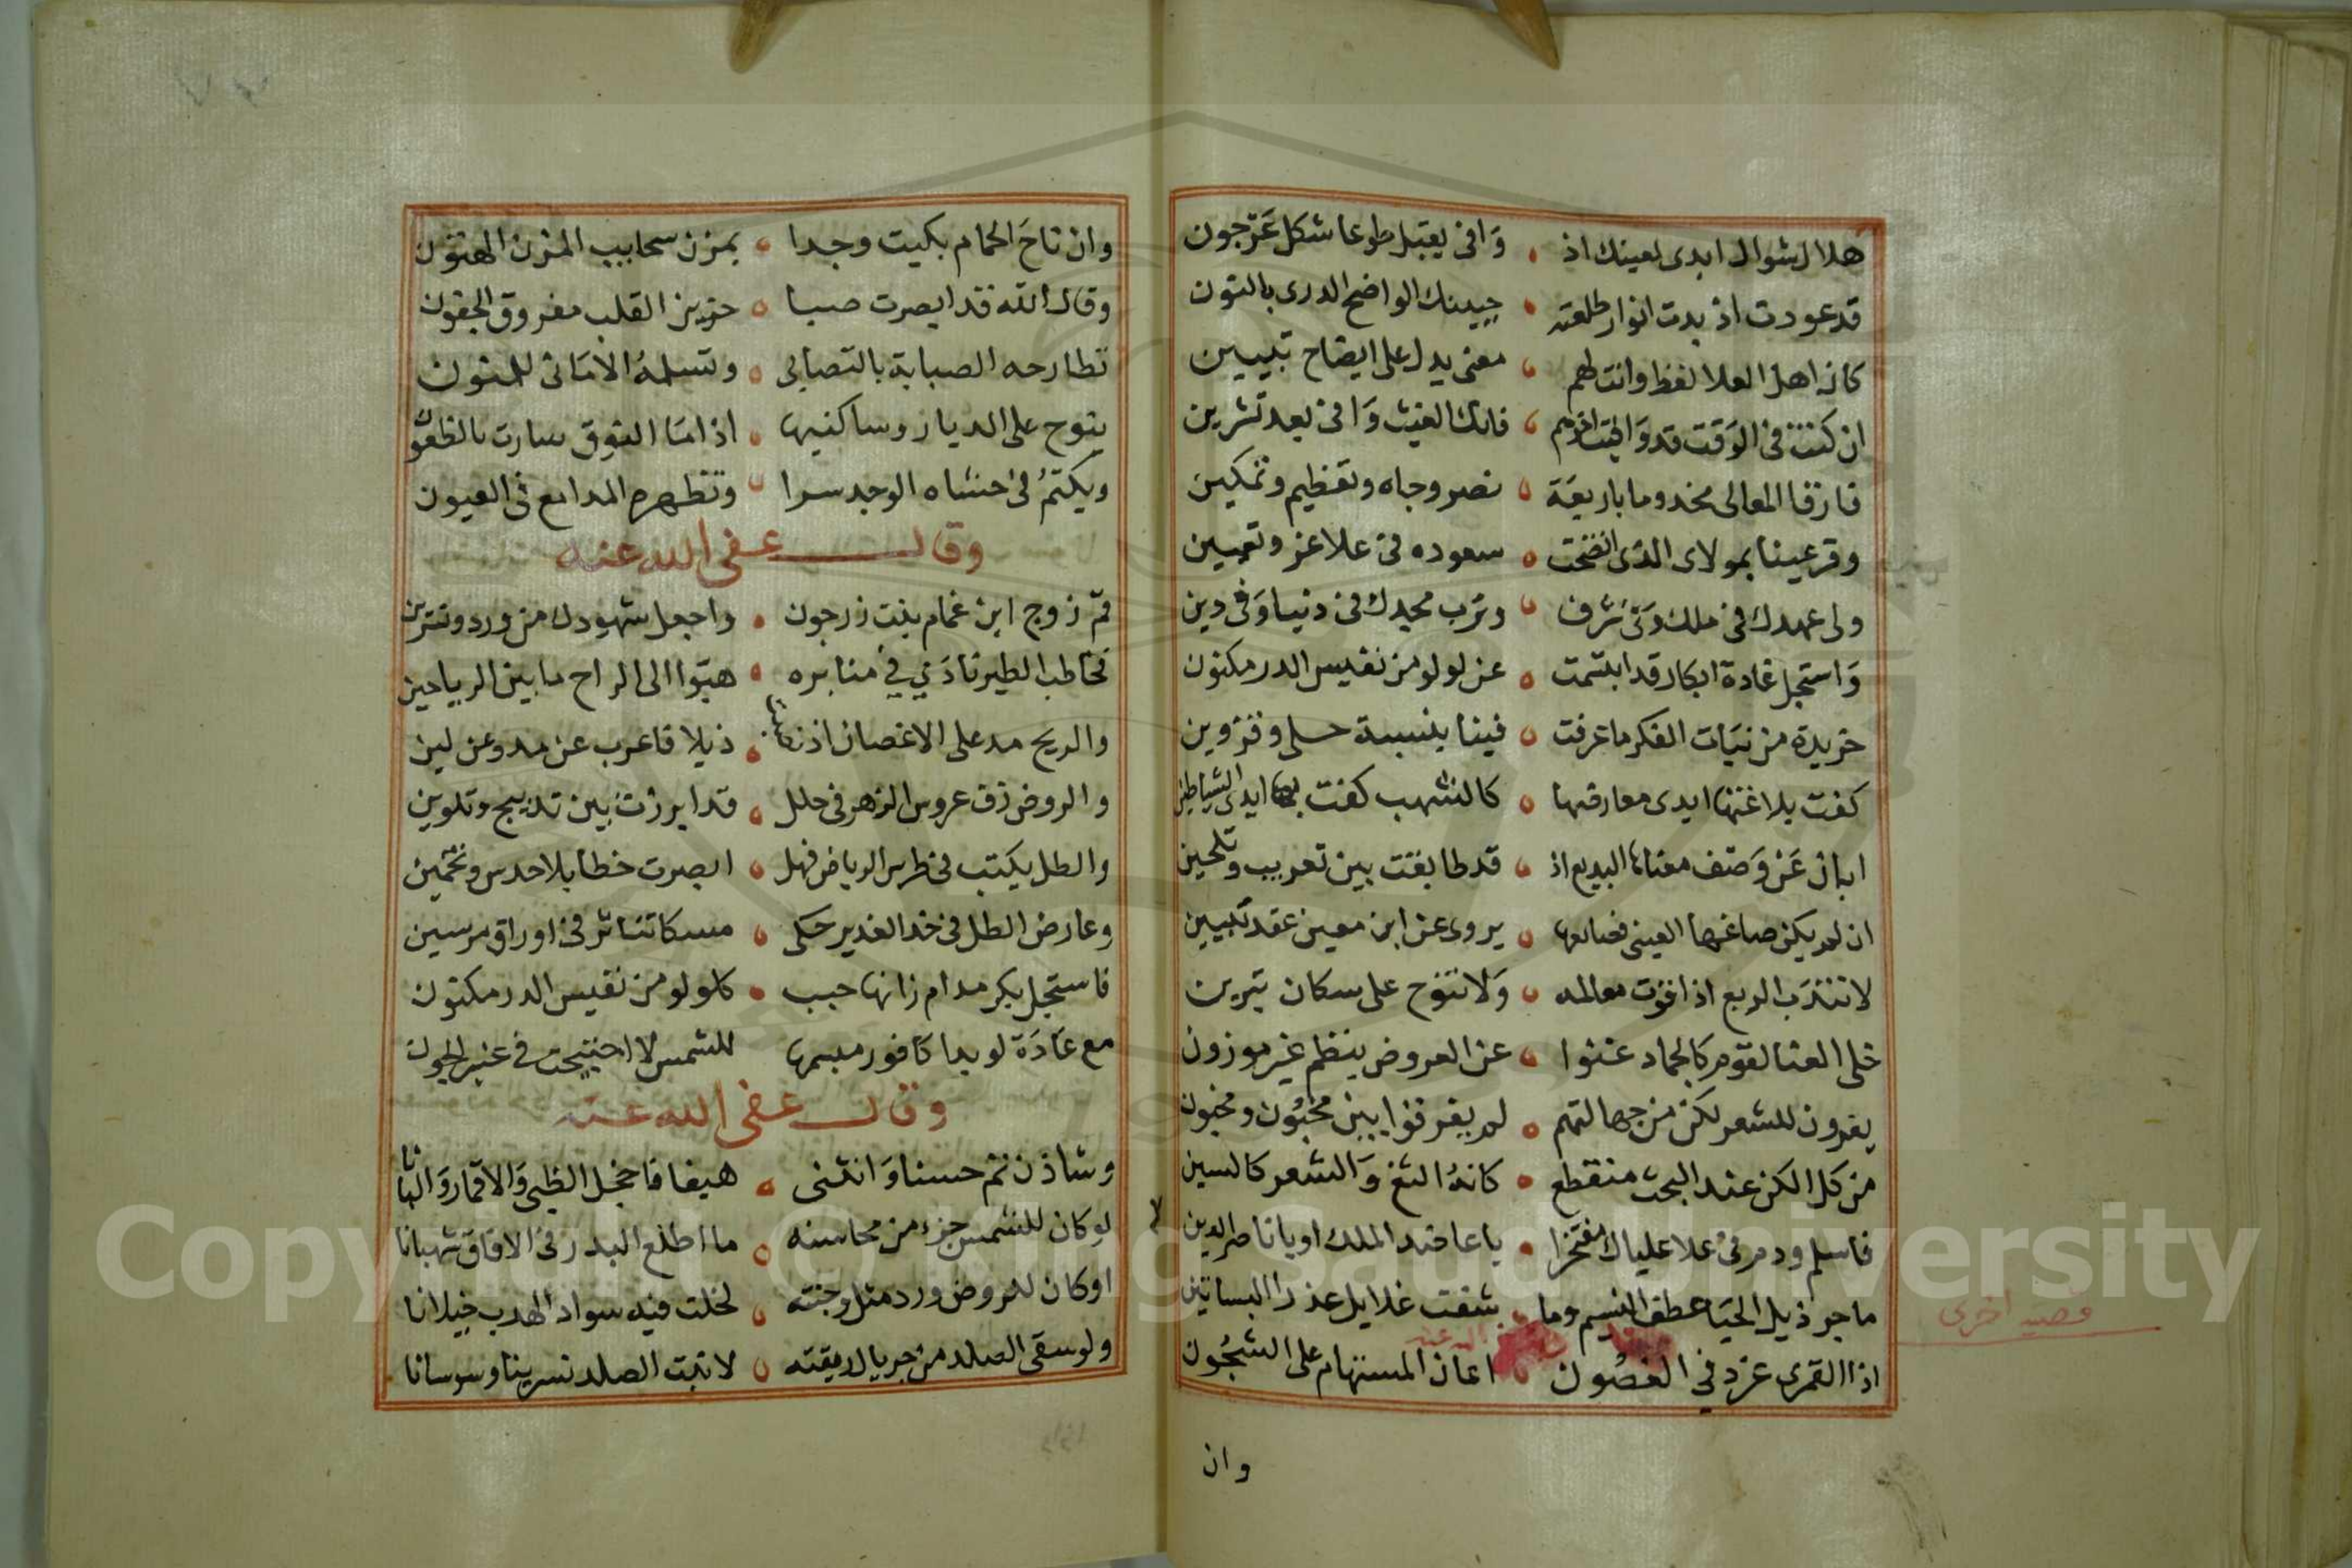 هلال شوال ابدى لعينك اذ • وَافى يقبل طوعا شكل عَرجون
قد عودت اذ بدت انوار طلعته • جبينك الواضح الدرى بالنون
كان اهل العلا لفظ وانت لهم • معنى يدل على ايضاح تبيين
ان كنت فى الوَقت قد وَافيت اخرهم • فانك الغيث وَافى بعد تشرين
فارقا المعالى مخدوما باربعَة • نصر وجاه وتعظيم وتمكين
وقر عينا بمولاى الذى اتضحت • سعوده فى علا عز وتعيين
ولى عهدك فى ملك وَفى شرف • وترب مجدك فى دنيا وَفى دين
وَاستجل غادة ابكار قد ابتسمت • عن لولو من نفيس الدر مكنون
خريدة من بنيَات الفكر ما عرفت • فينا بنسبة حسلى وقزوين
كفت بلاغتها ايدى معارضها • كالشهب كفت بها ايدى الشياطين
ابان عَن وَصف معناها البديع اذ • قد طابقت بين تعريب وتلحين
ان لم يكن صاغها العينى فصانعها • يروى عن ابن معين عقد تبيين
لا تندَب الربع اذ اقوت معالمه • وَلا تنوح على سكان يبرين
خلى العنا لقوم كالجماد عنوا • عن العروض بنظم غير موزون
يعزون للشعر لكن من جهالتهم • لم يفرقوا بين مخبُون ومخبون
من كل الكن عند البحث منقطع • كانهُ التغ وَالشعر كالسين
فاسلم ودم فى علا علياك مفتخرا • يا عاضد الملك او يا ناصر الدين
ما جر ذيل الحيَا عطف النسيم وما • شقت غلايل عذرا البساتين
قصيد اخرى
اذا القمرى غرد في الغصُون • اعان المستهام على الشجُون
وان
وان ناحَ الحمام بكيت وجدا • بمزن سحايب المزن الهتون
وقال الله قد ابصرت صبا • حزين القلب مفروق الجفون
تطارحه الصبابة بالتصابى • وتسلمهُ الامَانى للمنون
ينوح على الديار وساكنيها • اذا مَا النوق سارت بالظعون
ويكتمُ فى حشاه الوجد سرا • وتظهره المدامع فى العيون
وقال عفى الله عنه
قمّ زوج ابن غمام بنت زرجون • واجعل شهودك من ورد ونسرين
فخاطب الطير نادَي في منابره • هبّوا الى الراح ما بين الرياحين
والريح مد على الاغصان اذنها • ذيلا فاعرب عن مد وعن لين
والروض زف عروس الزهر فى حلل • قد ابرزت بين تدبيج وتلوين
والطل يكتب فى طرس الرياض فهل • ابصرت خطا بلا حدس وتخمين
وعارض الطل فى خد الغدير حكى • مسكا تناثر فى اوراق مرسين
فاستجل بكر مدام زانها حبب • كلولو من نفيس الدر مكنون
مع غَادَة لو بدا كافور مبسمها للشمس لا احتجبت فى عنبر الجون
وقال عفى الله عنه
وشادن تم حسنا وَانثنى • هيفا فاخجل الظبى وَالاقمار وَالبانا
لو كان للشمس جزء من محاسنه • ما اطلع البدر فى الافاق شهبانا
او كان للروض ورد مثل وجنته • لخلت فيه سواد الهدب خيلانا
ولو سقى الصلد من جريال ريقته • لانبت الصلد نسرينا وسوسانا
Copyright © King Saud University